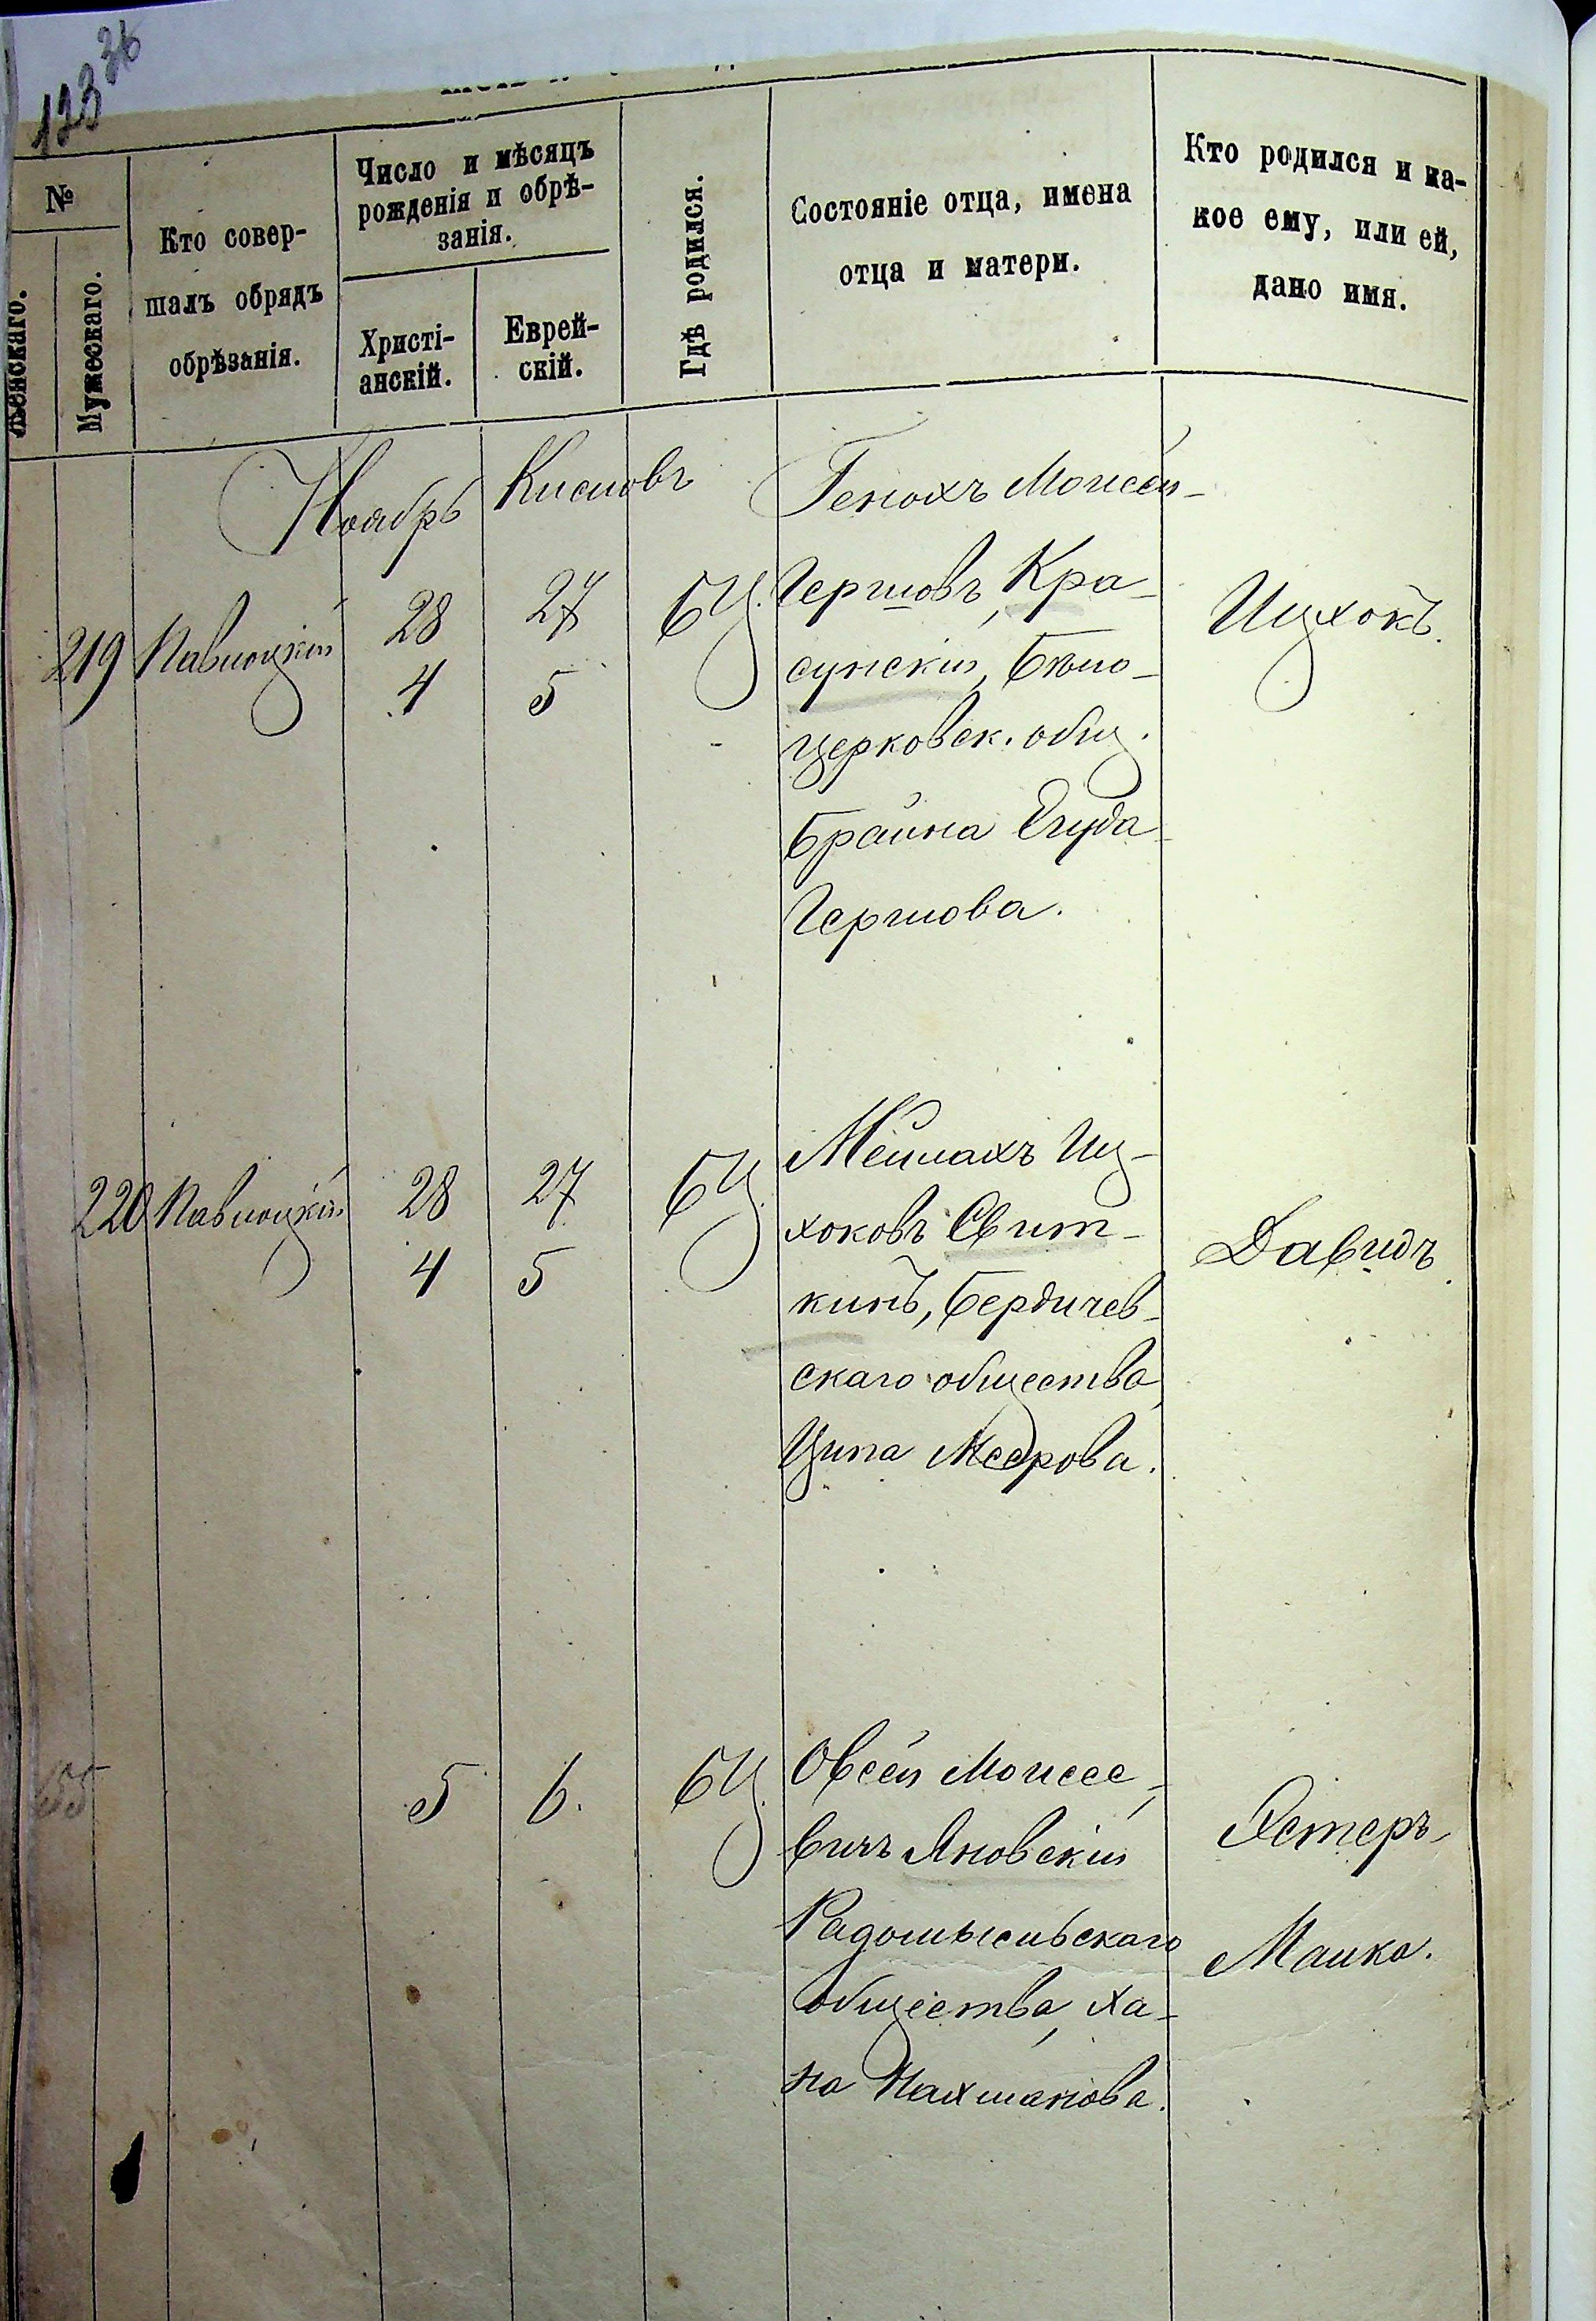 123 36
№
Женскаго.
Мужескаго.
Кто совер-
шалъ обрядъ
обрѣзанія.
Число и мѣсяцъ
рожденія и обрѣ-
занія.
Христі-
анскій.
Еврей-
скій.
Гдѣ родился.
Состояніе отца, имена
отца и матери.
Кто родился и ка-
кое ему, или ей,
дано имя.
Ноябрь Кисловъ
219 Павлоцкій 28 27 БЦ.
4 5
Генохъ Моисей-
Гершовъ, Кра-
сунскій, Бѣло-
церковск. общ.
Брайна Егуда-
Гершова.
Ицхокъ.
220 Павлоцкій 28 27 БЦ.
4 5
Мейлахъ Иц-
хоковъ Свит-
кинъ, Бердичев-
скаго общества,
Ципа Меерова.
Давидъ.
155 5 6. БЦ.
Овсей Моисее-
вичъ Яновскій
Радомысльскаго
общества, Ха-
на Нахманова.
Эстеръ-
Малка.